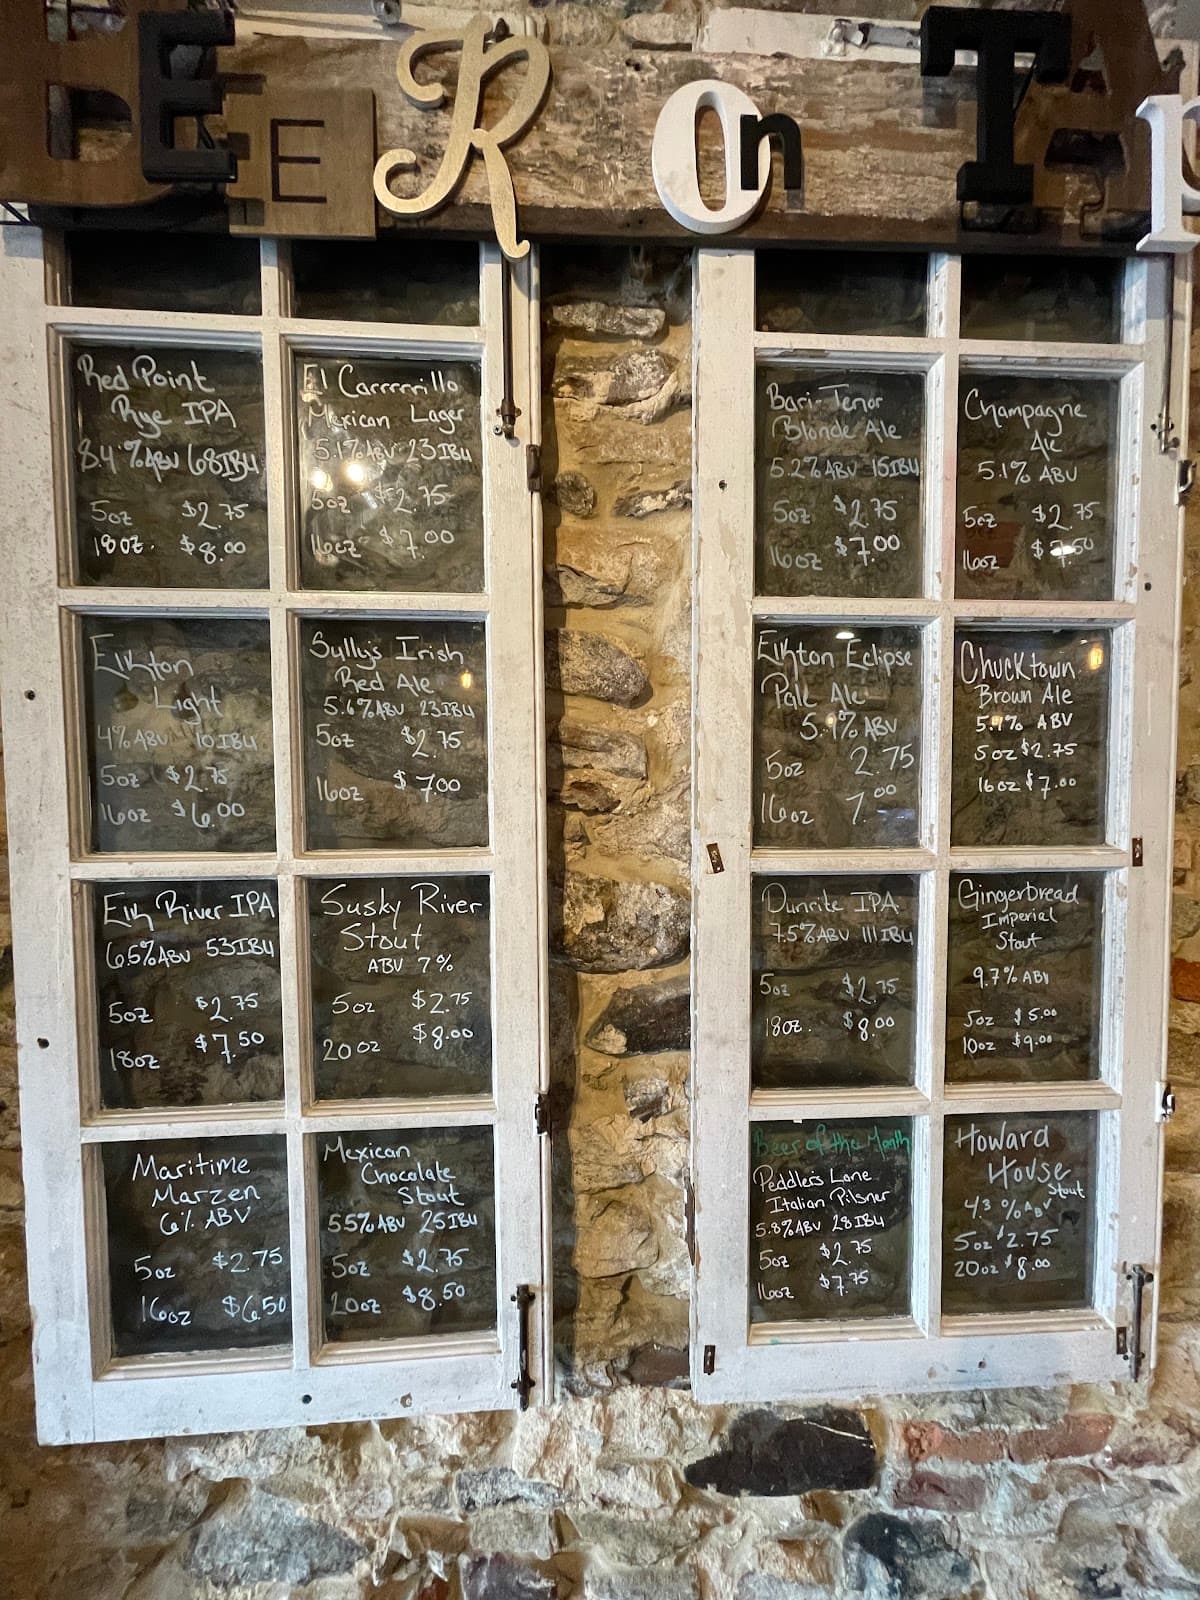 BEER On TAP
Red Point
Rye IPA
8.4%ABV 68IBU
5oz $2.75
18oz. $8.00
El Carrrrrillo
Mexican Lager
5.1%ABV 23IBU
5oz $2.75
16oz $7.00
Elkton
Light
4%ABV 10IBU
5oz $2.75
16oz $6.00
Sully's Irish
Red Ale
5.6%ABV 23IBU
5oz $2.75
16oz $7.00
Elk River IPA
6.5%ABV 53IBU
5oz $2.75
18oz $7.50
Susky River
Stout
ABV 7%
5oz $2.75
20oz $8.00
Maritime
Marzen
6% ABV
5oz $2.75
16oz $6.50
Mexican
Chocolate
Stout
5.5%ABV 25IBU
5oz $2.75
20oz $8.50
Bari-Tenor
Blonde Ale
5.2%ABV 15IBU
5oz $2.75
16oz $7.00
Champagne
Ale
5.1% ABV
5oz $2.75
16oz $7.50
Elkton Eclipse
Pale Ale
5.9% ABV
5oz 2.75
16oz 7.00
Chucktown
Brown Ale
ABV
5oz $2.75
16oz $7.00
Dunrite IPA
7.5%ABV 111IBU
5oz $2.75
18oz. $8.00
Gingerbread
Imperial
Stout
9.7% ABV
5oz $5.00
10oz $9.00
Beer of the Month
Peddler's Lane
Italian Pilsner
5.8%ABV 28IBU
5oz $2.75
16oz $7.75
Howard
House
Stout
4.3 %ABV
5oz $2.75
20oz $8.00